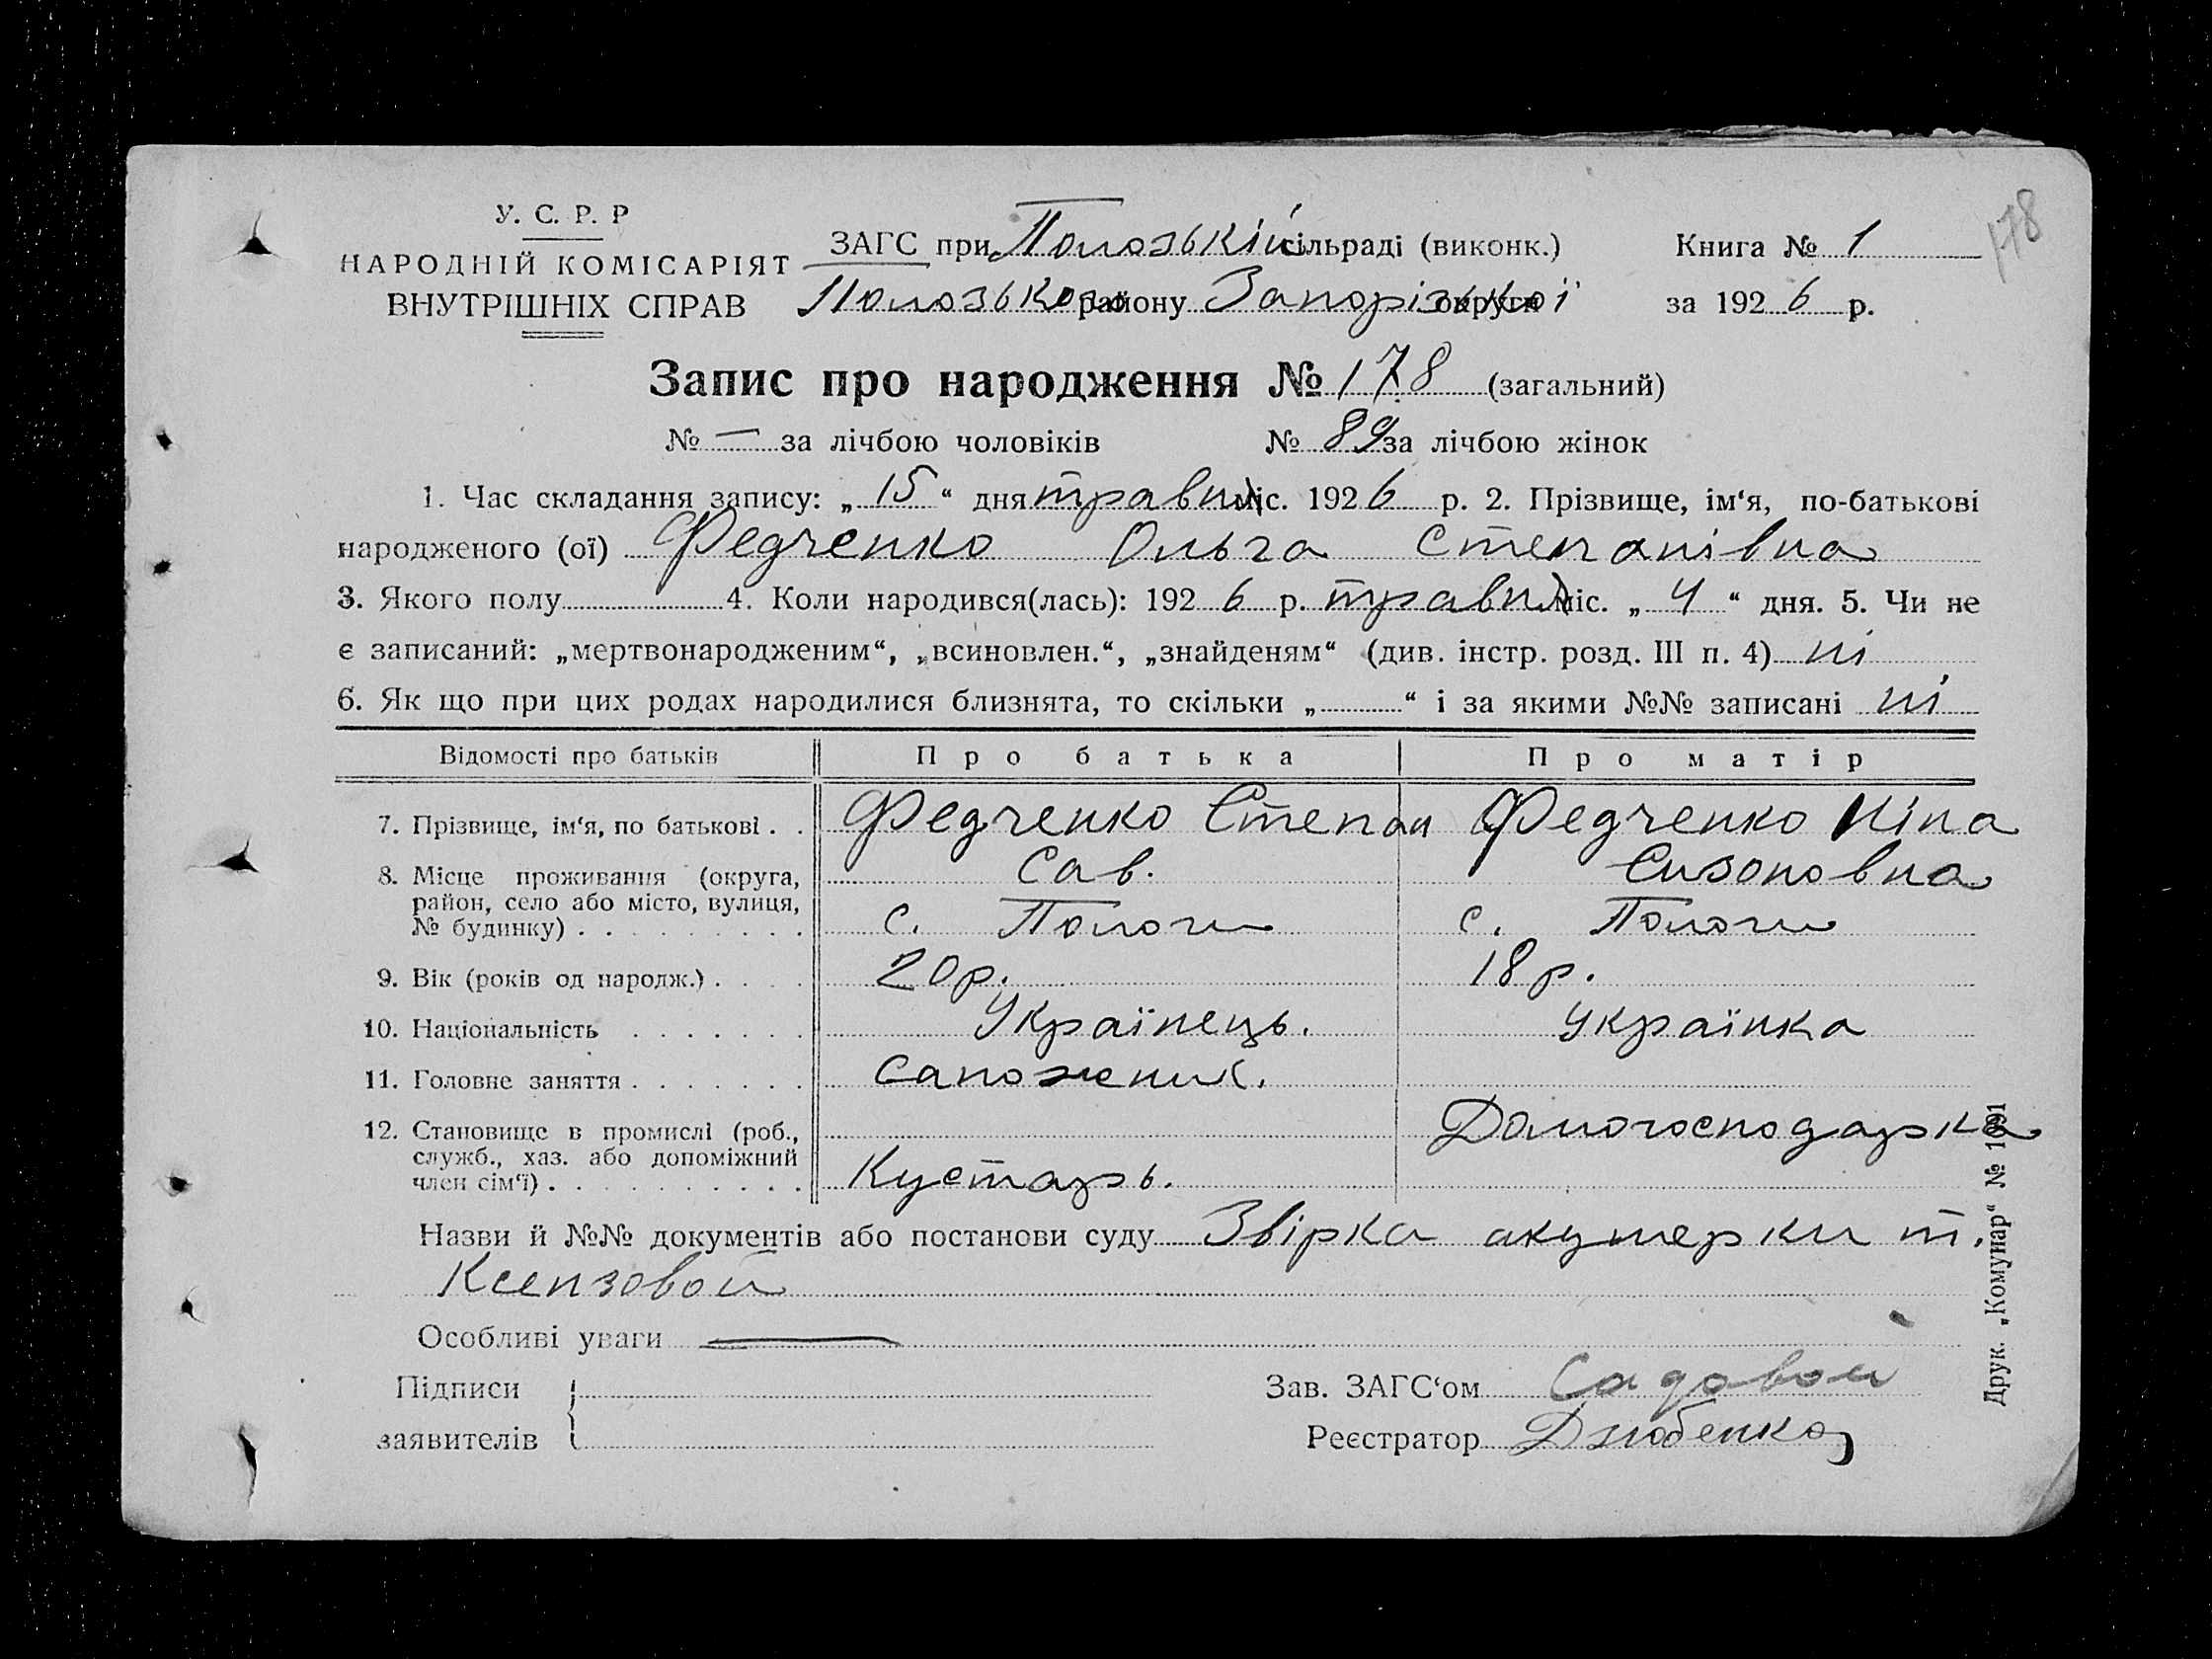 178
У. С. Р. Р
НАРОДНІЙ КОМІСАРІЯТ
ВНУТРІШНІХ СПРАВ
ЗАГС при Пологській сільраді (виконк.)
Пологського району Запорізької округи
Книга № 1
за 1926 р.
Запис про народження № 178 (загальний)
№ — за лічбою чоловіків № 89 за лічбою жінок
1. Час складання запису: „ 15 “ дня травня міс. 1926 р. 2. Прізвище, ім‘я, по-батькові
народженого (ої) Федченко Ольга Степанівна
3. Якого полу 4. Коли народився(лась): 1926 р. травня міс. „ 4 “ дня. 5. Чи не
є записаний: „мертвонародженим“, „всиновлен.“, „знайденям“ (див. інстр. розд. III п. 4) ні
6. Як що при цих родах народилися близнята, то скільки „ “ і за якими №№ записані ні
Відомості про батьків Про батька Про матір
7. Прізвище, ім‘я, по батькові . . Федченко Степан Федченко Ніна
8. Місце проживання (округа, Сав. Сизоновна
район, село або місто, вулиця,
№ будинку) . . . . . . . . . с. Пологи с. Пологи
9. Вік (років од народж.) . . . . 20 р. 18 р.
10. Національність . . . . . . . Українець. Українка
11. Головне заняття . . . . . . . Сапожник.
12. Становище в промислі (роб., Домогосподарка
служб., хаз. або допоміжний
член сім‘ї) . . . . . . . . . . Кустарь.
Назви й №№ документів або постанови суду Звірка акушерки т.
Ксензовой
Особливі уваги —
Підписи
заявителів
Зав. ЗАГС‘ом Садовой
Реєстратор Дзюбенко
Друк. „Комунар“ № 1691